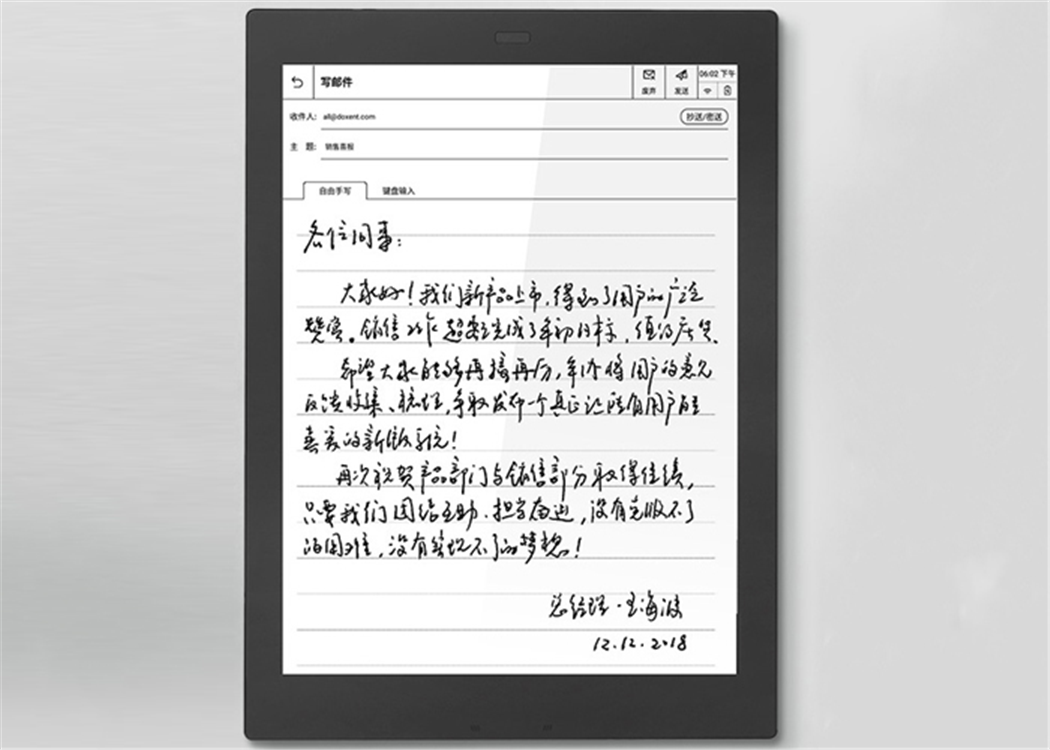 写邮件
废弃
发送
06:02 下午
收件人: all@doxent.com
抄送/密送
主 题: 销售喜报
自由手写 键盘输入
各位同事：
大家好！我们新产品上市，得到了用户的广泛
赞赏。销售工作超额完成了年初目标，值得庆贺。
希望大家能够再接再厉，年终将用户的意见
反馈收集、梳理，争取发布一个真正让所有用户都
喜爱的新版系统！
再次祝贺产品部门与销售部分取得佳绩，
只要我们团结互助、担当奋进，没有克服不了
的困难，没有实现不了的梦想！
总经理·王海波
12.12.2018